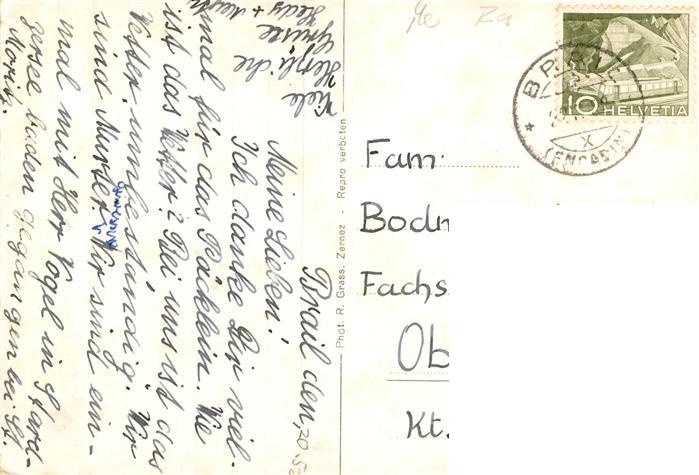 Brail den, 20. 5
Meine Lieben!
Ich danke Dir viel-
mal für das Päcklein. Wie
ist das Wetter? Bei uns ist das
Wetter unbeständig. Wir
sind Munter Wir sind ein-
mal mit Herr Vogel in Stard-
zersee baden gegangen bei St.
Moritz.
Viele
Herzliche
Grüsse
Hedy +
Phot. R. Grass, Zernez - Repro verboten
Za
BRAIL
(ENGADIN)
10 HELVETIA
Fam.
Bodm
Fachs
Ob
Kt.